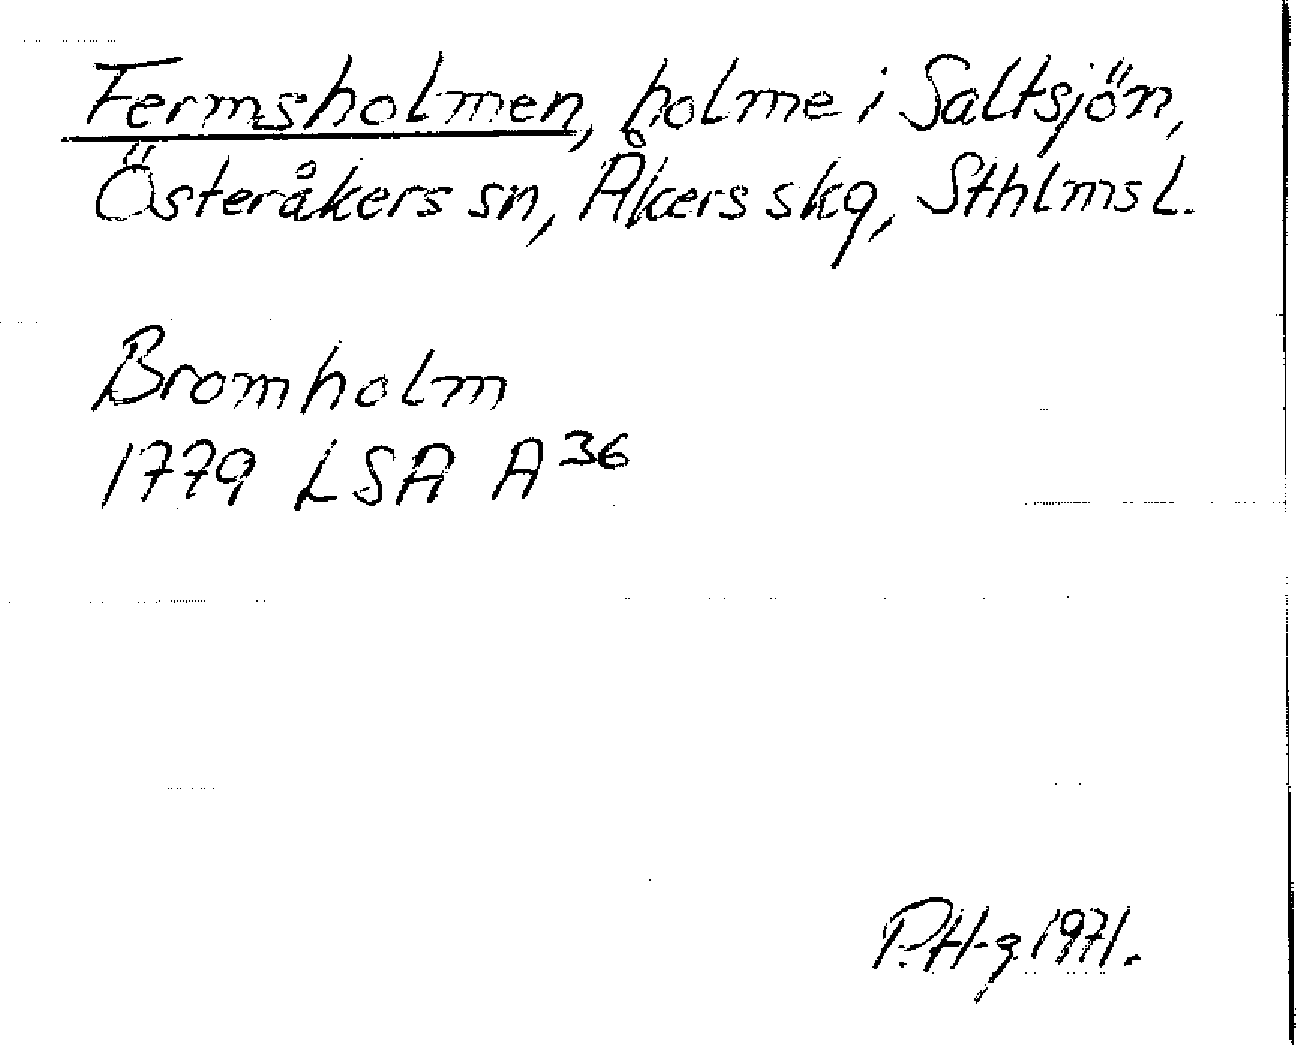 Fermsholmen, holme i Saltsjön,
Österåkers sn, Åkers skg, Sthlms L.
Bromholm
1779 LSA A 36
P.H-g 1971.